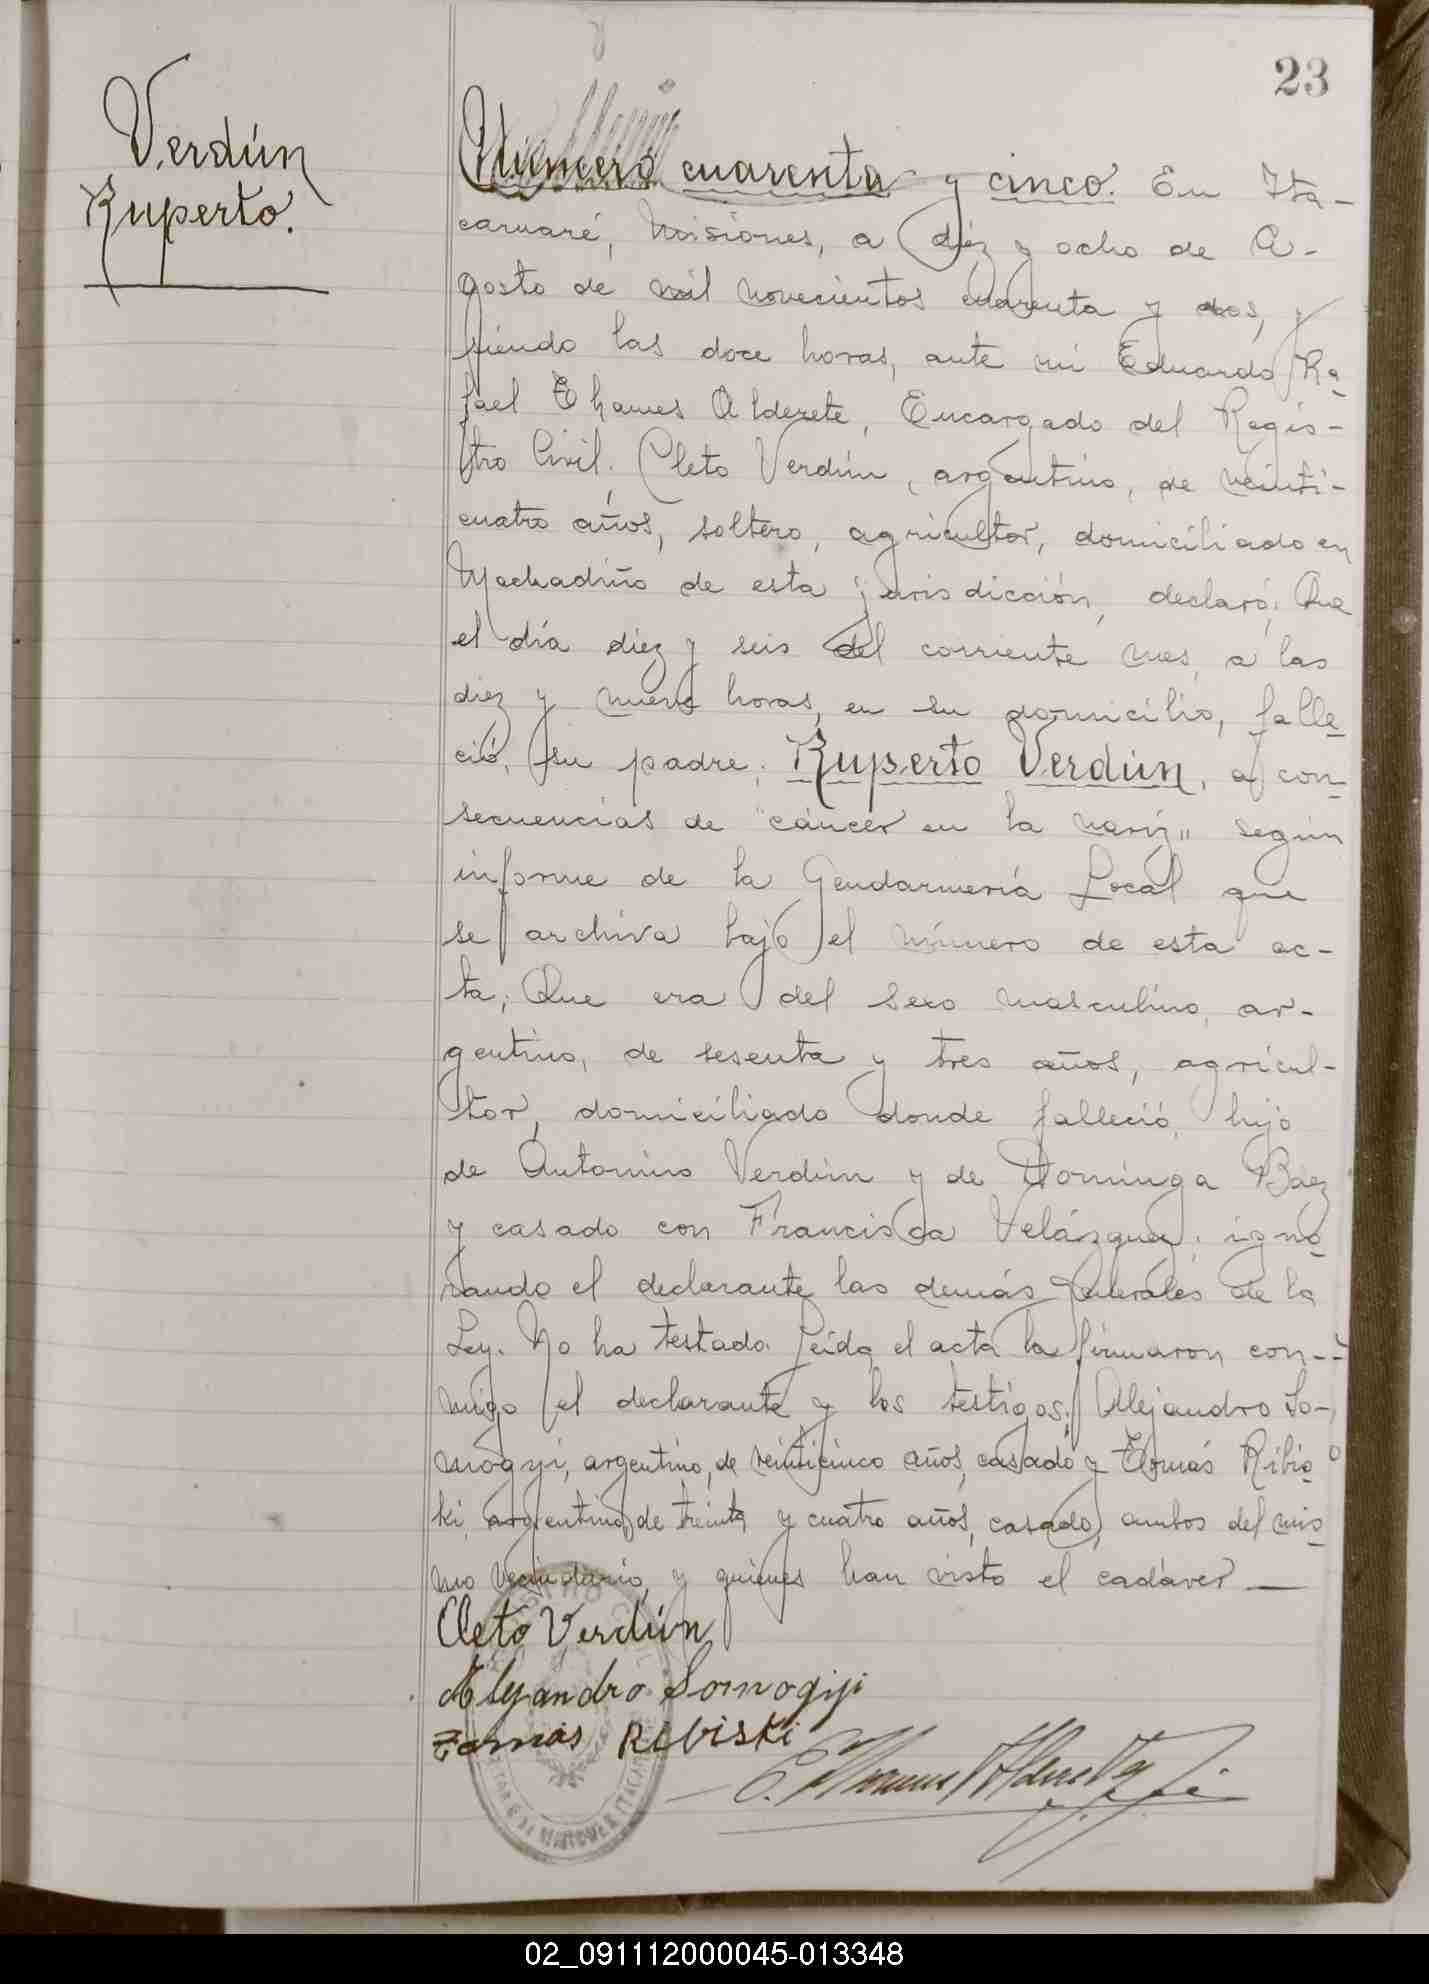 23
Verdún
Ruperto.
Número cuarenta y cinco. En Ita-
caruaré, Misiones, a diéz y ocho de A-
gosto de mil novecientos cuarenta y dos, y
siendo las doce horas, ante mi Eduardo Ra-
fael Thames Alderete, Encargado del Regis-
tro Civil. Cleto Verdún, argentino, de veinti-
cuatro años, soltero, agricultor, domiciliado en
Machadiño de esta jurisdicción, declaró; Que
el día diez y seis del corriente mes, a las
diez y nueve horas, en su domicilio, falle-
ció, su padre; Ruperto Verdún, a con-
secuencias de "cáncer en la naríz" según
informe de la Gendarmería Local que
se archiva bajo el número de esta ac-
ta; Que era del sexo masculino, ar-
gentino, de sesenta y tres años, agricul-
tor, domiciliado donde falleció, hijo
de Antonino Verdún y de Dominga Báez
y casado con Francisca Velázquez; igno-
rando el declarante las demás generales de la
Ley. No ha testado. Leída el acta la firmaron con--
migo el declarante y los testigos; Alejandro So-
mogyi, argentino, de veinticinco años, casado y Tomás Ribis-
ki, argentino, de treinta y cuatro años, casado, ambos del mis-
mo vecindario, y quienes han visto el cadáver —
Cleto Verdún
Alejandro Somogyi
Tomas Ribiski
E. Thames Alderete
02_091112000045-013348